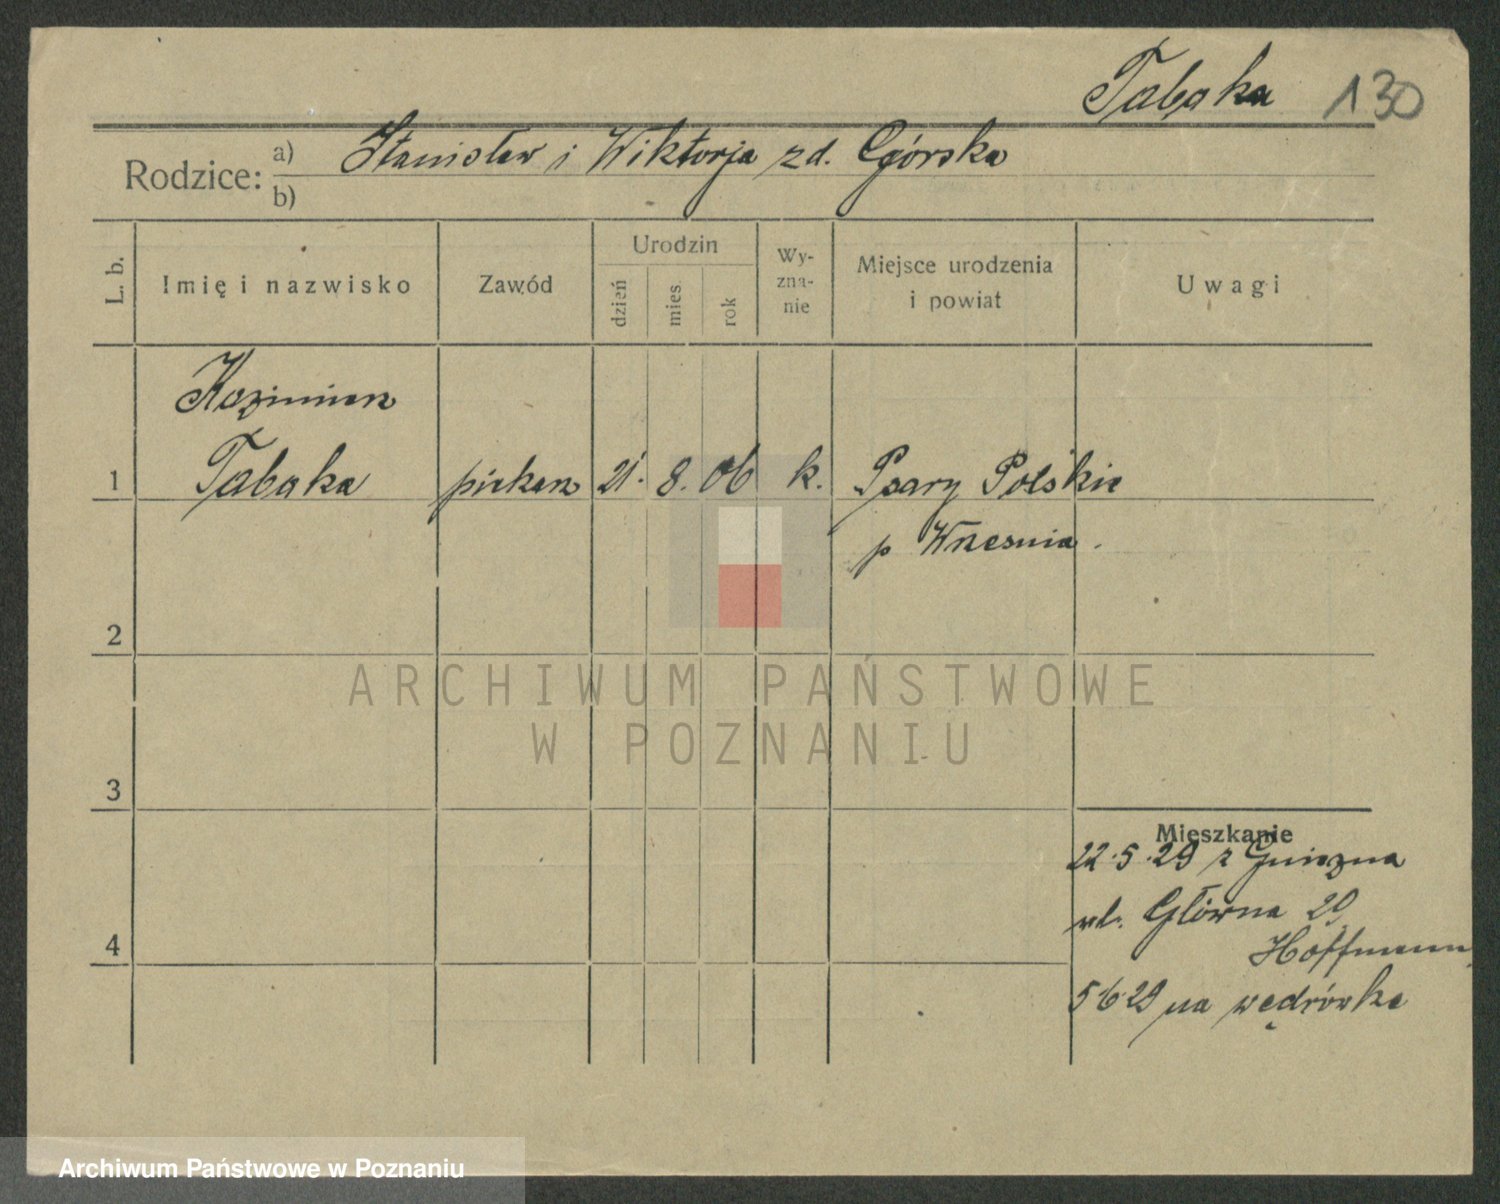 Tabaka 130
Rodzice: a) Stanisław i Wiktorja zd. Górska
b)
L. b.
Imię i nazwisko
Zawód
Urodzin
dzień
mies
rok
Wy-
zna-
nie
Miejsce urodzenia
i powiat
Uwagi
Kazimierz
1 Tabaka piekarz 21. 8. 06 k. Psary Polskie
p Wrzesnia.
2
ARCHIWUM PAŃSTWOWE
W POZNANIU
3
Mieszkanie
22.5.29 z Gniezna
ul. Główna 29
4
Hoffmann
5 6 29 na wędrówkę
Archiwum Państwowe w Poznaniu